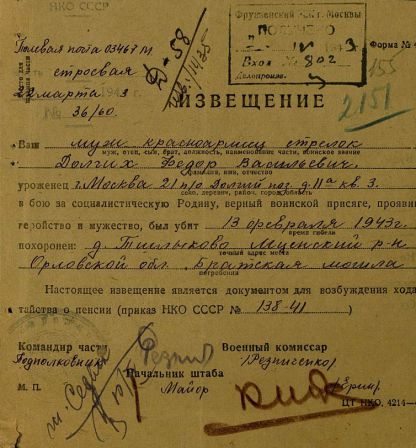 НКО СССР
Фрунзенский Москвы
ПОЛУЧЕНО
3
Вход № 802
Делопроизв.
Форма № 4
Полевая почта 03467 М
строевая
2 марта 1943 г.
№ 36/60.
Д-58
155
2151
ИЗВЕЩЕНИЕ
Ваш муж красноармеец стрелок
муж, отец, сын, брат, должность, наименование части, воинское звание
Долгих Федор Васильевич
фамилия, имя, отчество
уроженец г. Москва 21 п/о Долгий поз. д. 11а кв. 3.
село, деревня, район, город, область
в бою за социалистическую Родину, верный воинской присяге, прояви
геройство и мужество, был убит 13 февраля 1943г.
время гибели
похоронен: д. Мценский р-н
точный адрес места
Орловской обл. Братская могила
погребения
Настоящее извещение является документом для возбуждения хода
тайства о пенсии (приказ НКО СССР № 138-41)
Командир части
Военный комиссар
Подполковник
(Резниченко)
Начальник штаба
М. П.
Майор
ЦТ НКО. 4214—4